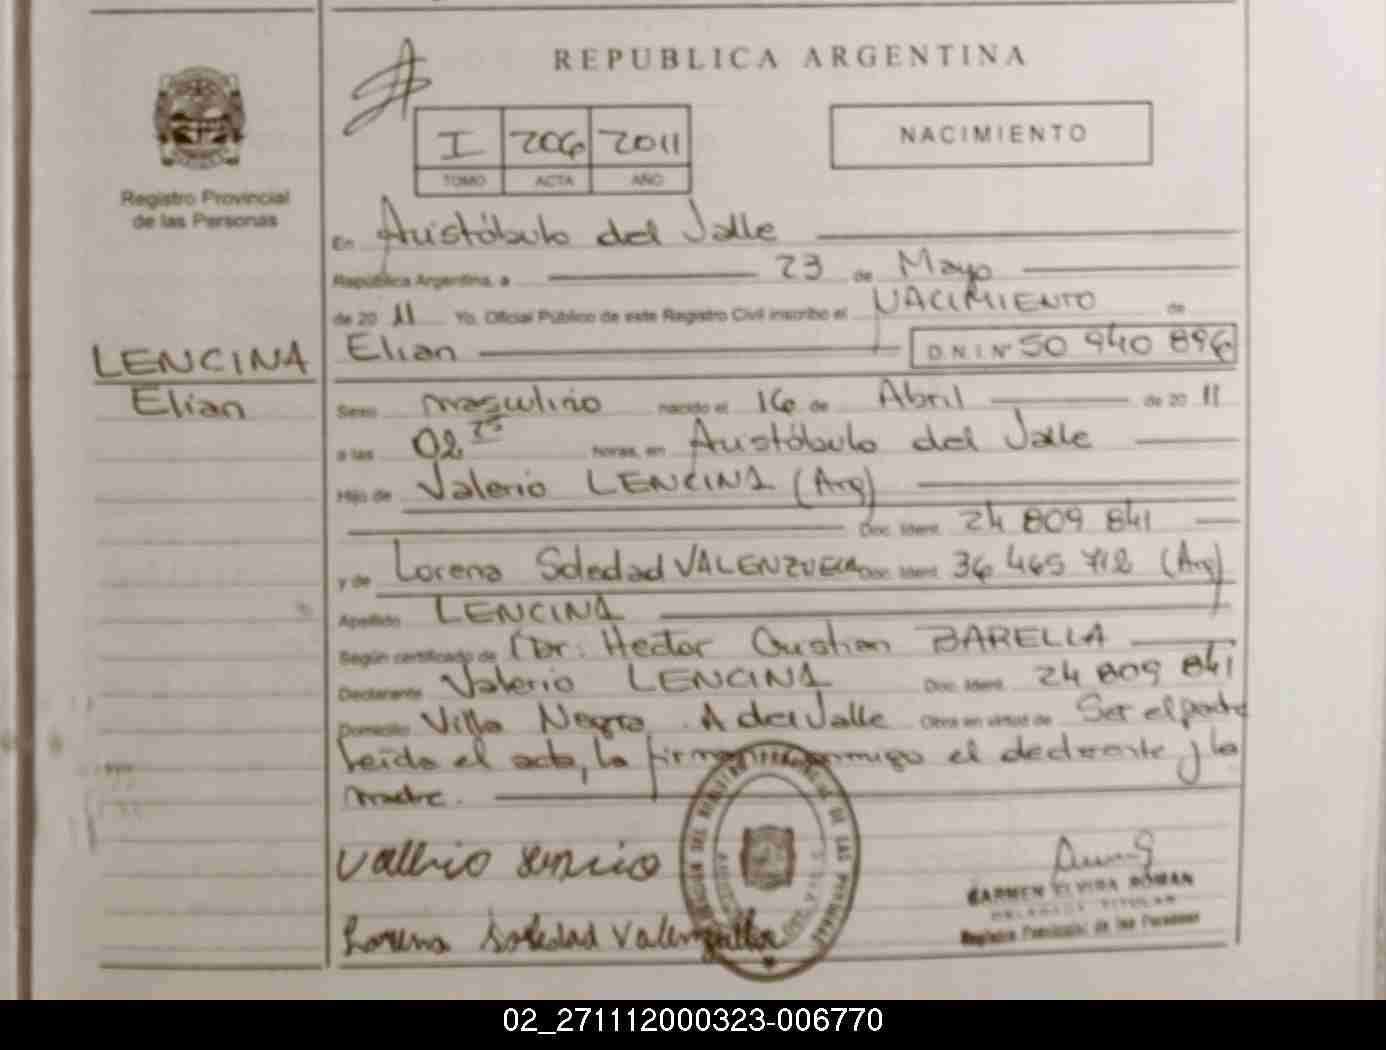 REPUBLICA ARGENTINA
Registro Provincial
de las Personas
I 206 2011
TOMO ACTA AÑO
NACIMIENTO
En Aristóbulo del Valle
República Argentina, a 23 de Mayo
de 2011 Yo, Oficial Público de este Registro Civil inscribo el NACIMIENTO de
LENCINA
Elian
Elian D.N.I. Nº 50 940 896
Sexo masculino nacido el 16 de Abril de 2011
a las 02 horas, en Aristóbulo del Valle
Hijo de Valerio LENCINA (Arg)
Doc. Ident. 24 809 841
y de Lorena Soledad VALENZUELA Doc. Ident. 36 465 712 (Arg)
Apellido LENCINA
Según certificado de Dr. Hector Cristian BARELLA
Declarante Valerio LENCINA Doc. Ident. 24 809 841
Domicilio Villa Negra, A del Valle Obra en virtud de Ser el padre
Leída el acta, la firman conmigo el declarante y la
madre.
Lorena Soledad Valenzuela
CARMEN ELVIRA ROMAN
DELEGADA TITULAR
Registro Provincial de las Personas
02_271112000323-006770